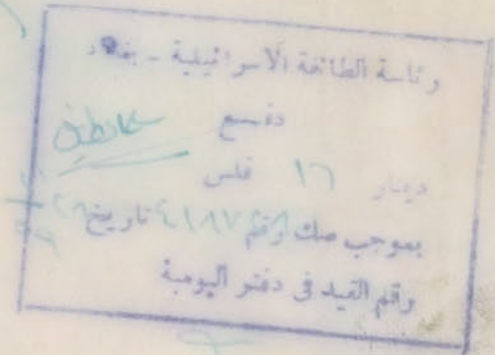 رئاسة الطائفة الاسرائيلية - بغداد
دفع
دينار ١٦ فلس
بموجب صك رقم تاريخ
رقم القيد في دفتر اليومية